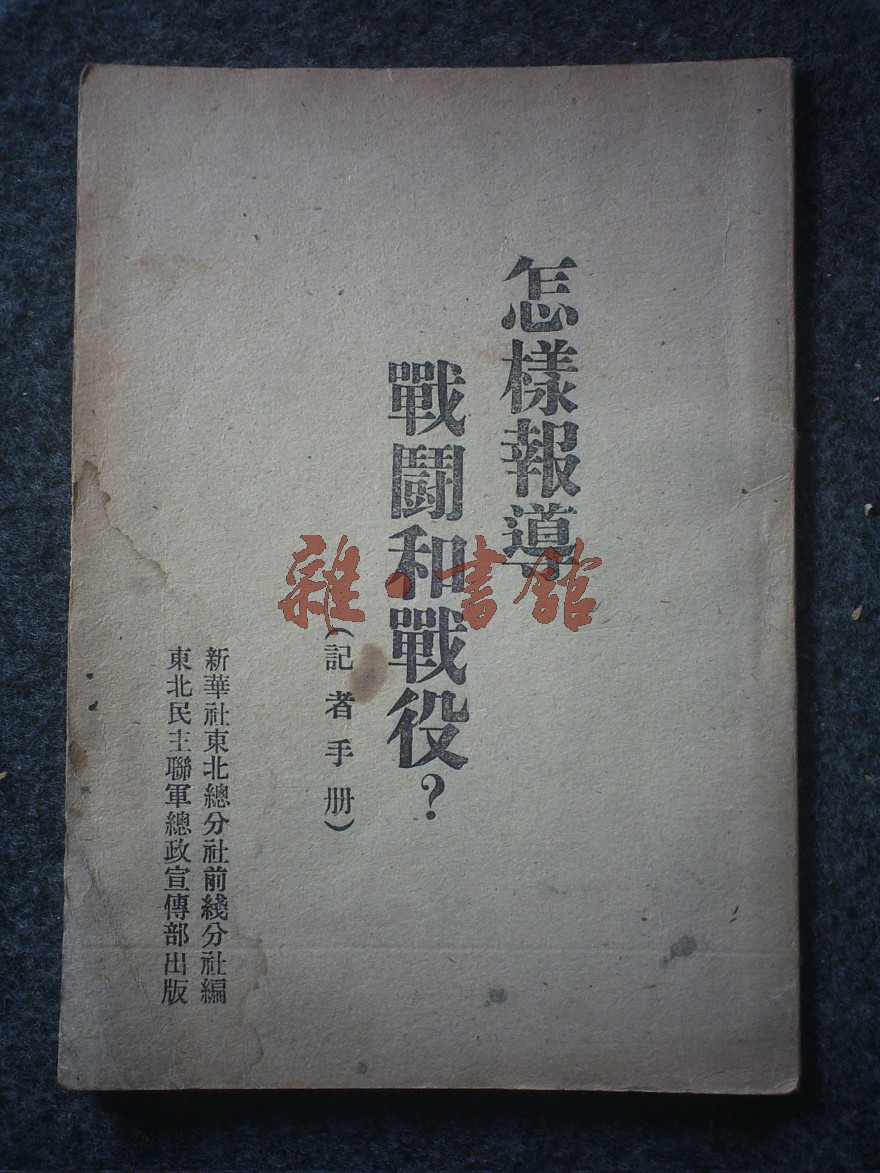 怎樣報導
戰鬪和戰役？
（記者手册）
新華社東北總分社前綫分社編
東北民主聯軍總政宣傳部出版
雜·書館